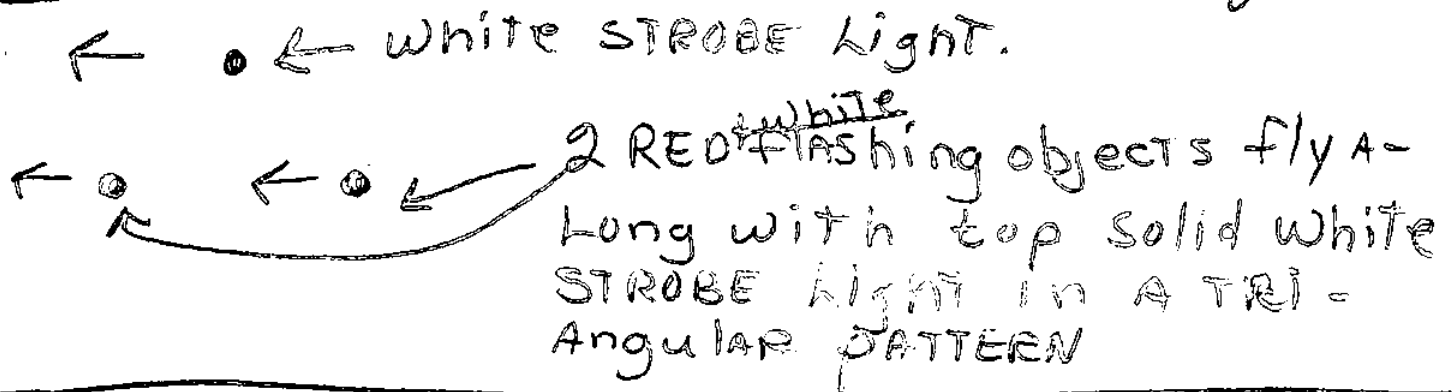 White STROBE Light.
+ white
2 RED flashing objects fly A-
Long with top solid white
STROBE Light in A TRI-
Angular PATTERN